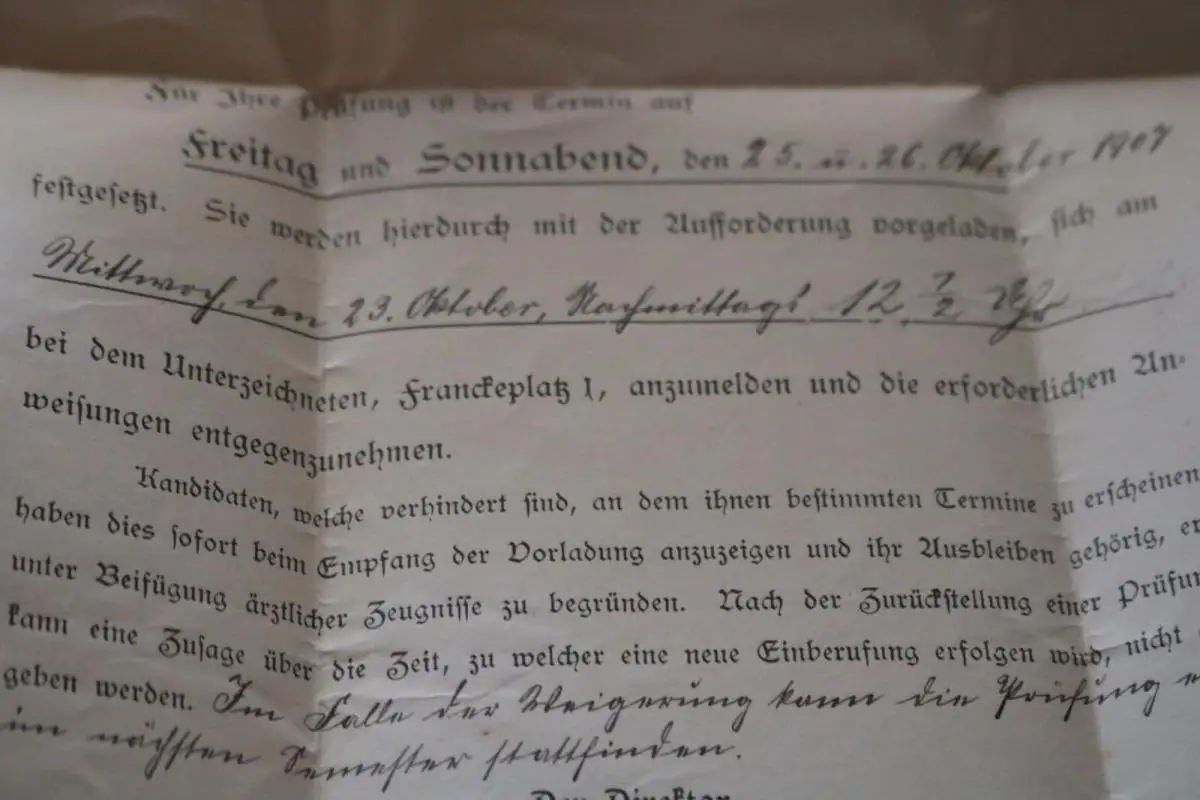 Für Ihre Prüfung ist der Termin auf
Freitag und Sonnabend, den 25. u. 26. Oktober 1907
festgesetzt. Sie werden hierdurch mit der Aufforderung vorgeladen, sich am
Mittwoch, den 23. Oktober, Nachmittags 12 1/2 Uhr
bei dem Unterzeichneten, Franckeplatz 1, anzumelden und die erforderlichen An-
weisungen entgegenzunehmen.
Kandidaten, welche verhindert sind, an dem ihnen bestimmten Termine zu erscheinen
haben dies sofort beim Empfang der Vorladung anzuzeigen und ihr Ausbleiben gehörig, er
unter Beifügung ärztlicher Zeugnisse zu begründen. Nach der Zurückstellung einer Prüfun
kann eine Zusage über die Zeit, zu welcher eine neue Einberufung erfolgen wird, nicht
geben werden. Im Falle der Weigerung kann die Prüfung e
im nächsten Semester stattfinden.
Der Direktor